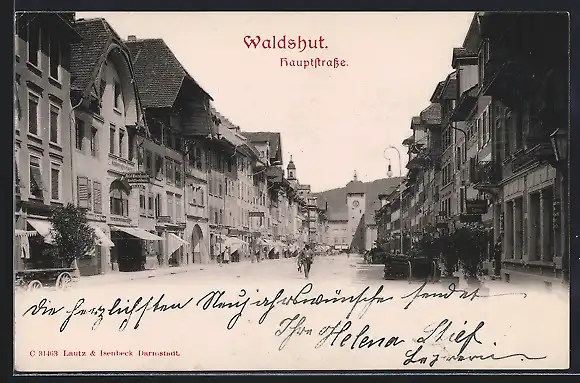 Waldshut.
Hauptstraße.
die herzlichsten Neujahrswünsche sendet
Ihre Helena Stief.
Lehrerin
C 31463 Lautz & Isenbeck Darmstadt.